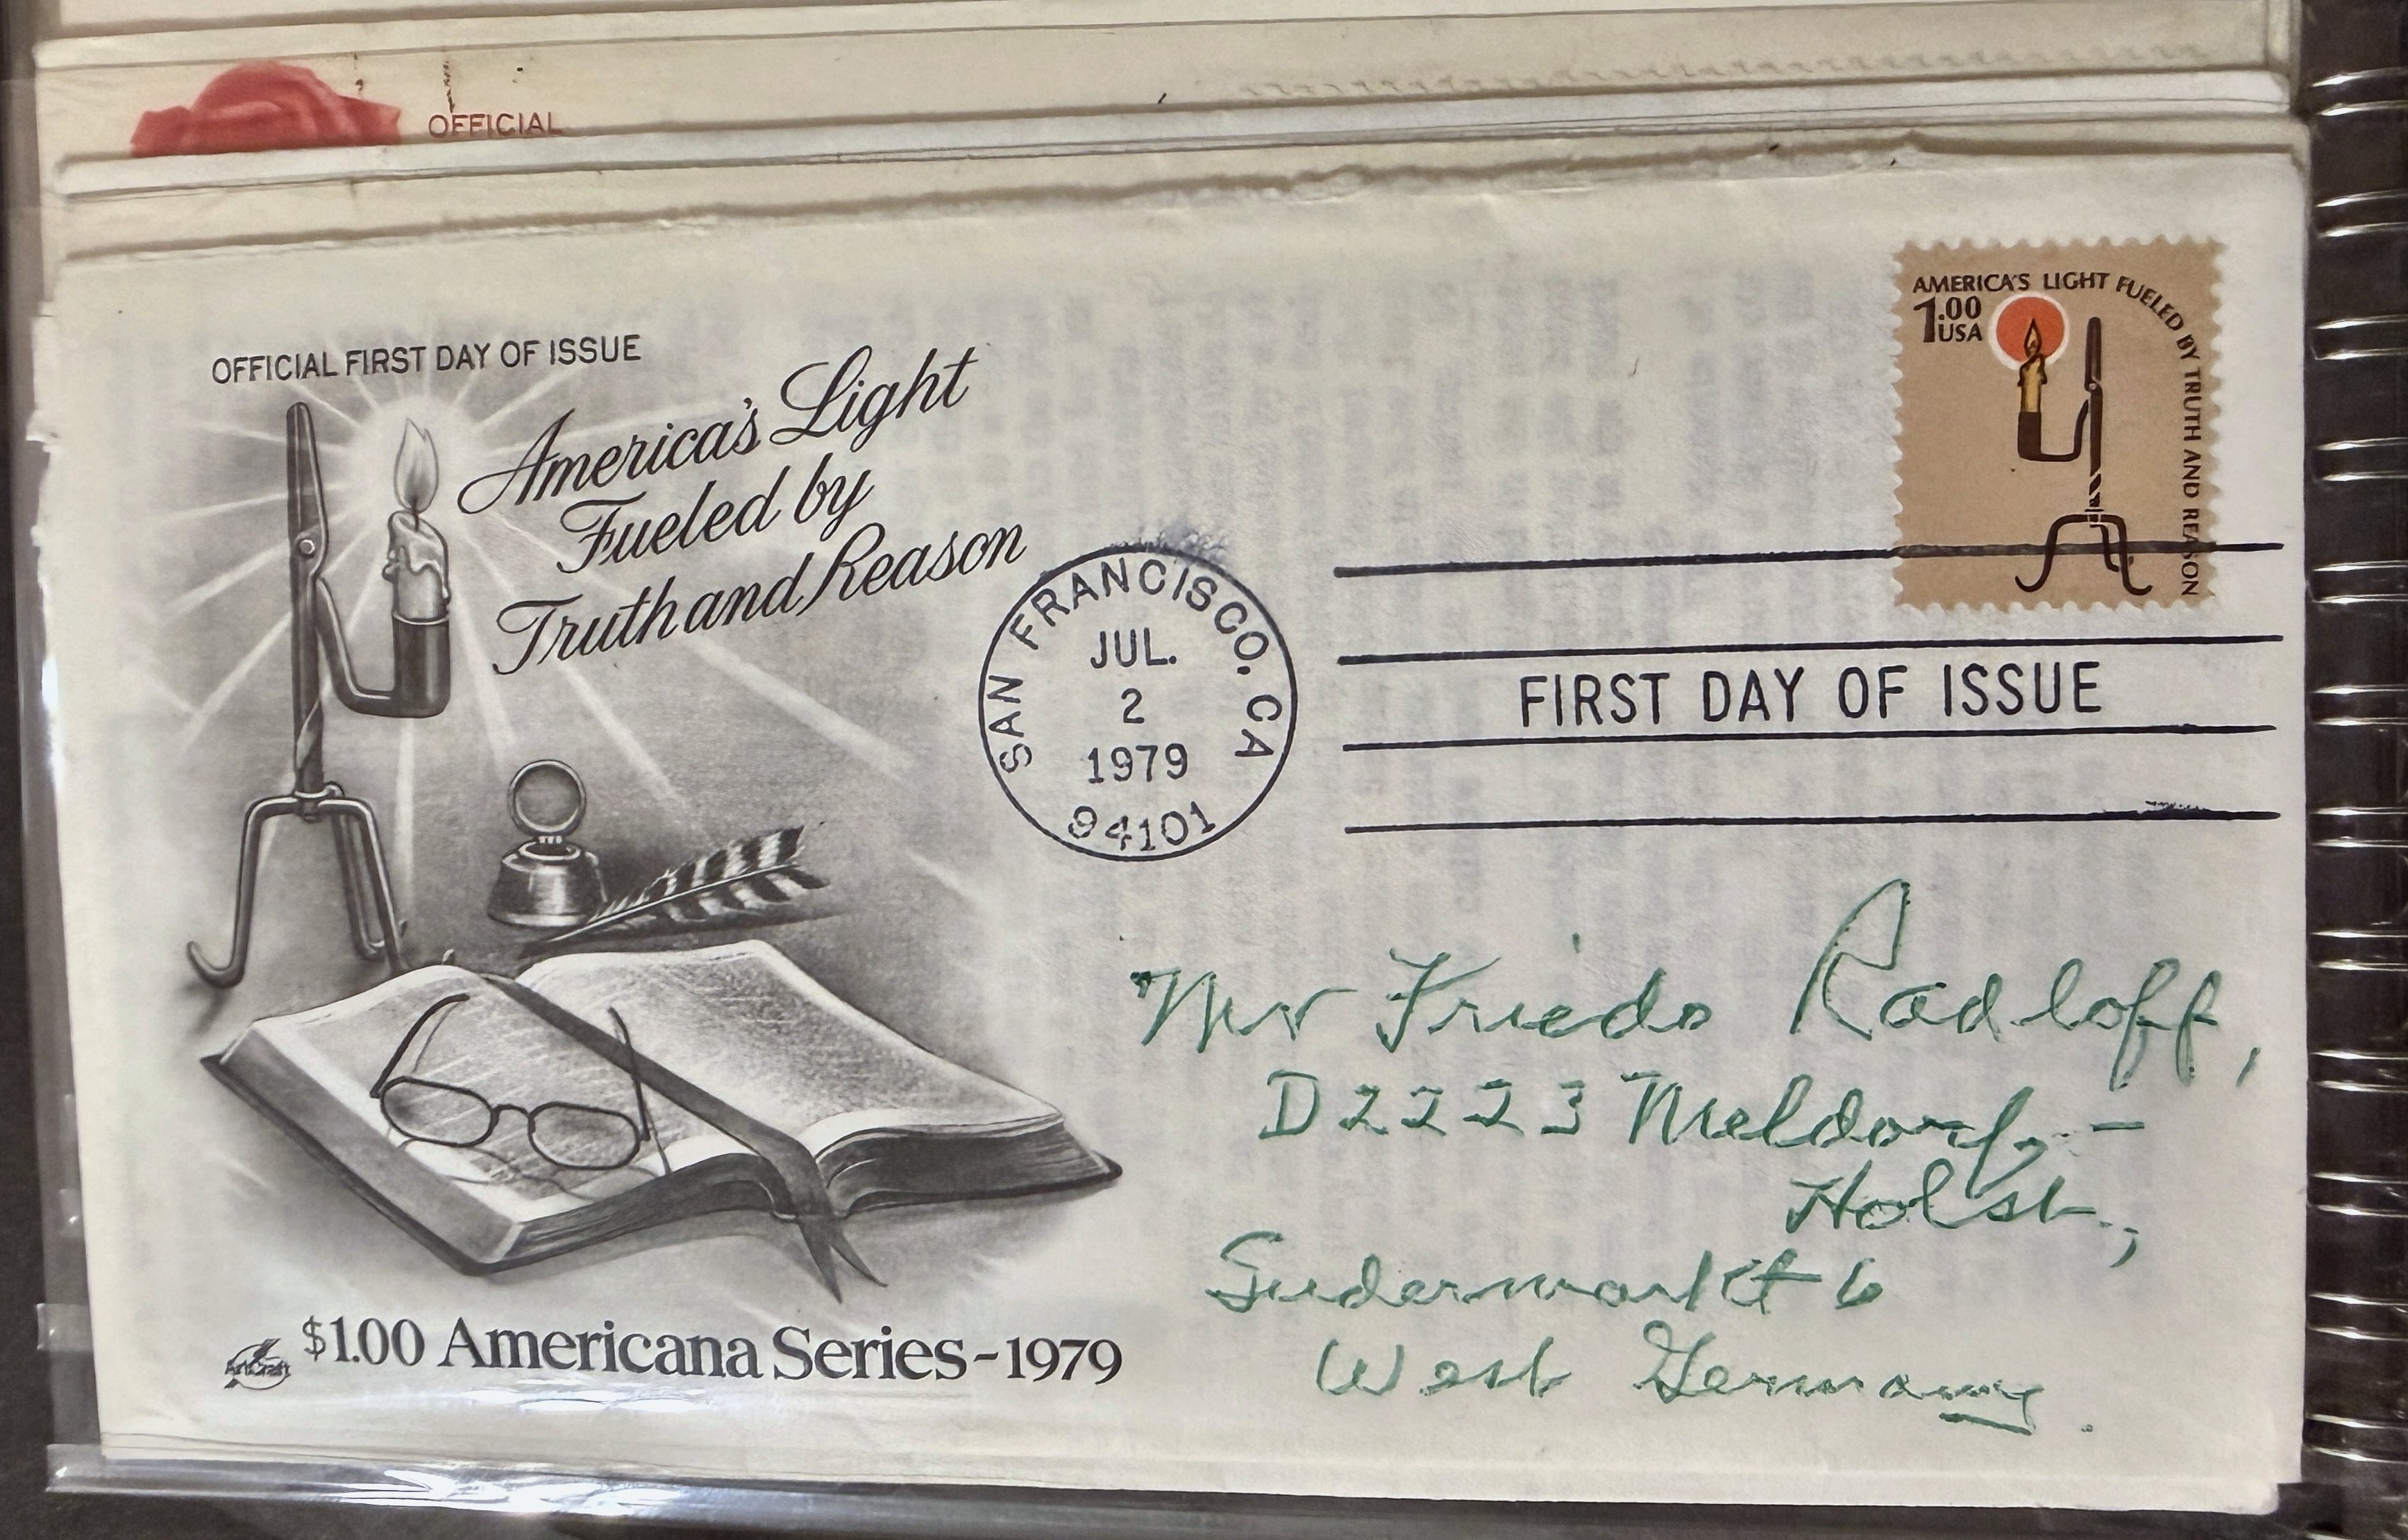 OFFICIAL
OFFICIAL FIRST DAY OF ISSUE
America's Light
Fueled by
Truth and Reason
AMERICA'S LIGHT FUELED BY TRUTH AND REASON
1.00
USA
SAN FRANCISCO, CA
JUL.
2
1979
94101
FIRST DAY OF ISSUE
Mr Friedo Radloff,
D2223 Meldorf, -
Holst.,
Sudermarkt 6
West Germany.
ArtCraft
$1.00 Americana Series - 1979